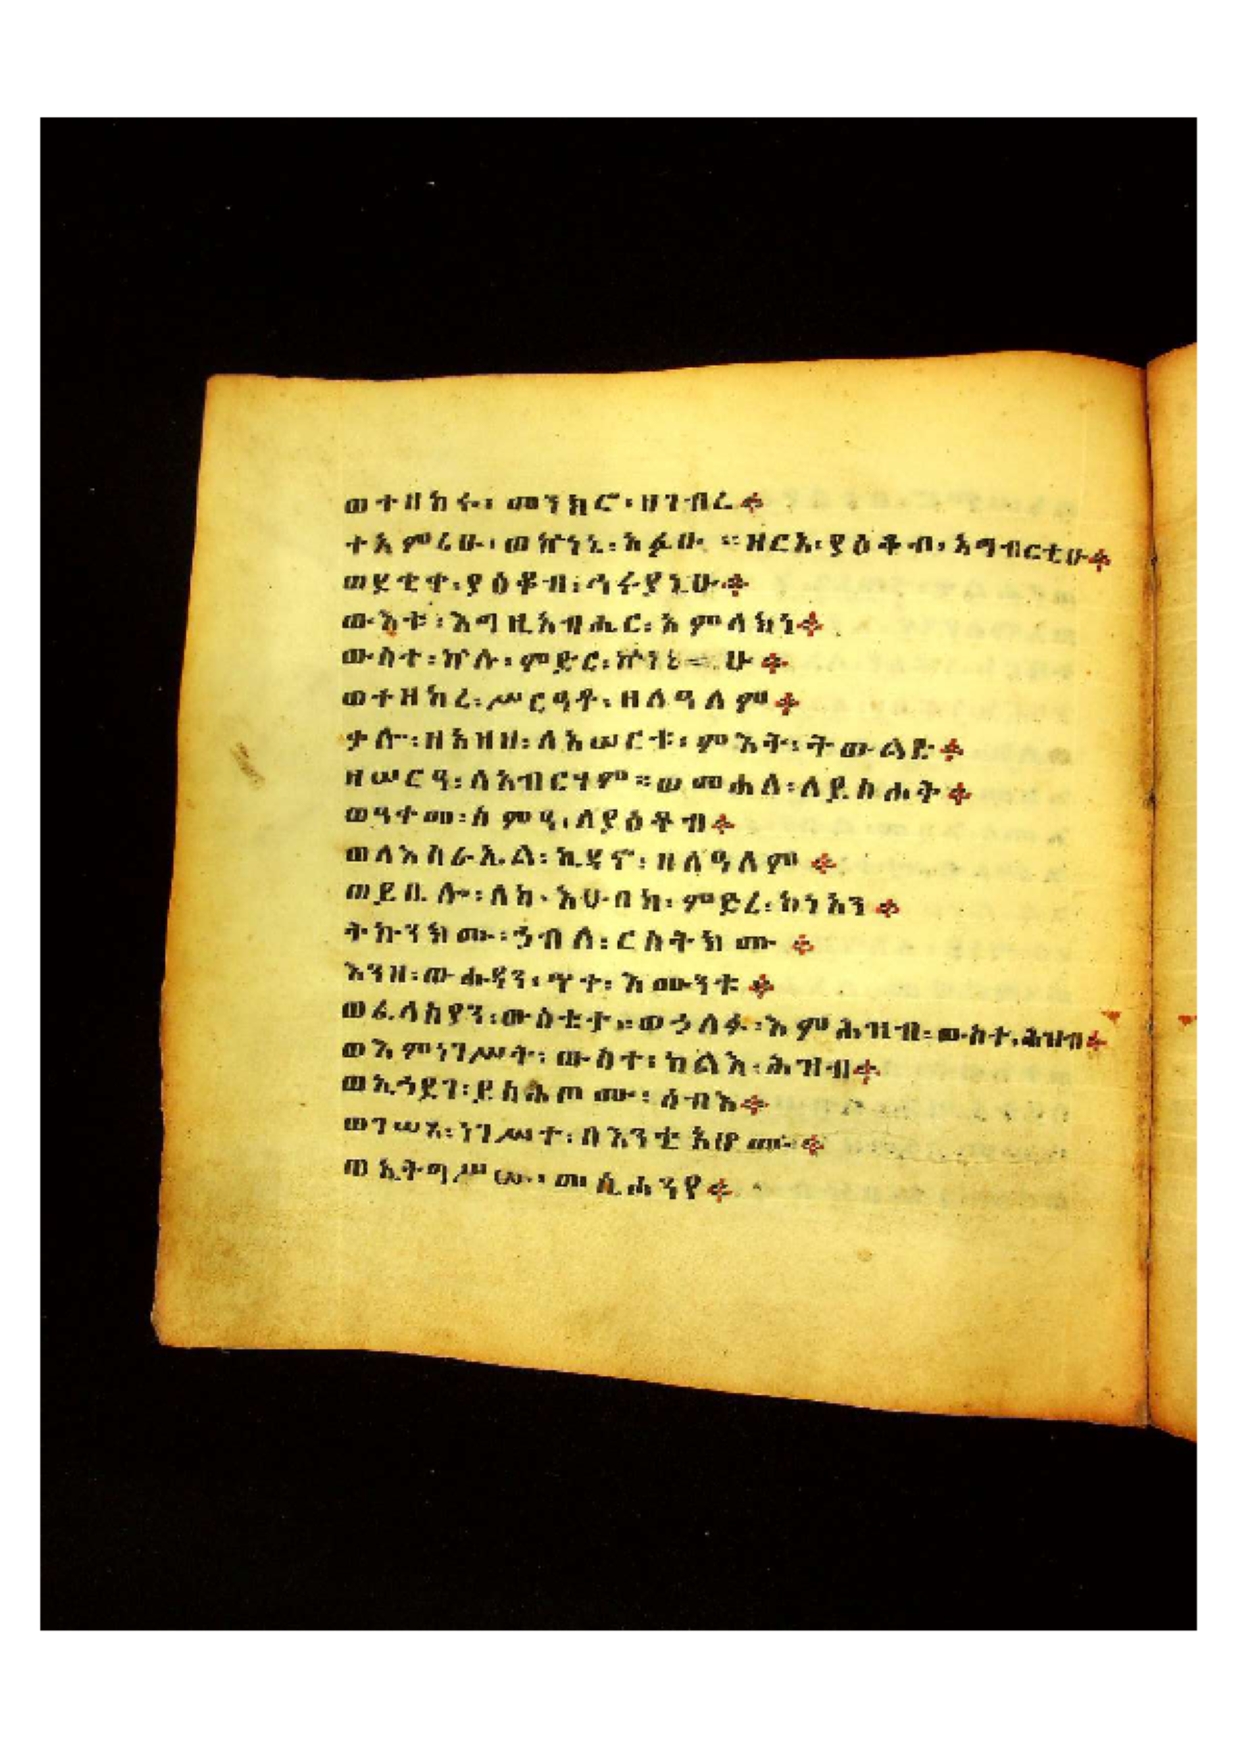 ወተዘከሩ፡ መንክሮ፡ ዘገብረ፨
ተአምሪሁ፡ ወኵነኔ፡ አፉሁ ። ዘርአ፡ ያዕቆብ፡ አግብርቲሁ፨
ወደቂቀ፡ ያዕቆብ፡ ኅሩያኒሁ፨
ውእቱ፡ እግዚአብሔር፡ አምላክነ፨
ውስተ፡ ኵሉ፡ ምድር፡ ኵነኔሁ፨
ወተዘከረ፡ ሥርዓቶ፡ ዘለዓለም፨
ቃሎ፡ ዘአዘዘ፡ ለአሠርቱ፡ ምእት፡ ትውልድ፨
ዘሠርዓ፡ ለአብርሃም ። ወመሐለ፡ ለይስሐቅ፨
ወዓቀመ፡ ስምዓ፡ ለያዕቆብ፨
ወለእስራኤል፡ ኪዳኖ፡ ዘለዓለም፨
ወይቤሎ፡ ለከ፡ እሁበከ፡ ምድረ፡ ከነአን፨
ትኩንክሙ፡ ኀብለ፡ ርስትክሙ፨
እንዘ፡ ውሑዳን፡ ጥቀ፡ እሙንቱ፨
ወፈላስያን፡ ውስቴታ ። ወኃለፉ፡ እምሕዝብ፡ ውስተ፡ ሕዝብ፨
ወእምነገሥት፡ ውስተ፡ ካልእ፡ ሕዝብ፨
ወኢኀደገ፡ ይስሕጦሙ፡ ሰብእ፨
ወገሠጸ፡ ነገሥተ፡ በእንቲአሆሙ፨
ወኢትግሥሡ፡ መሲሐንየ፨